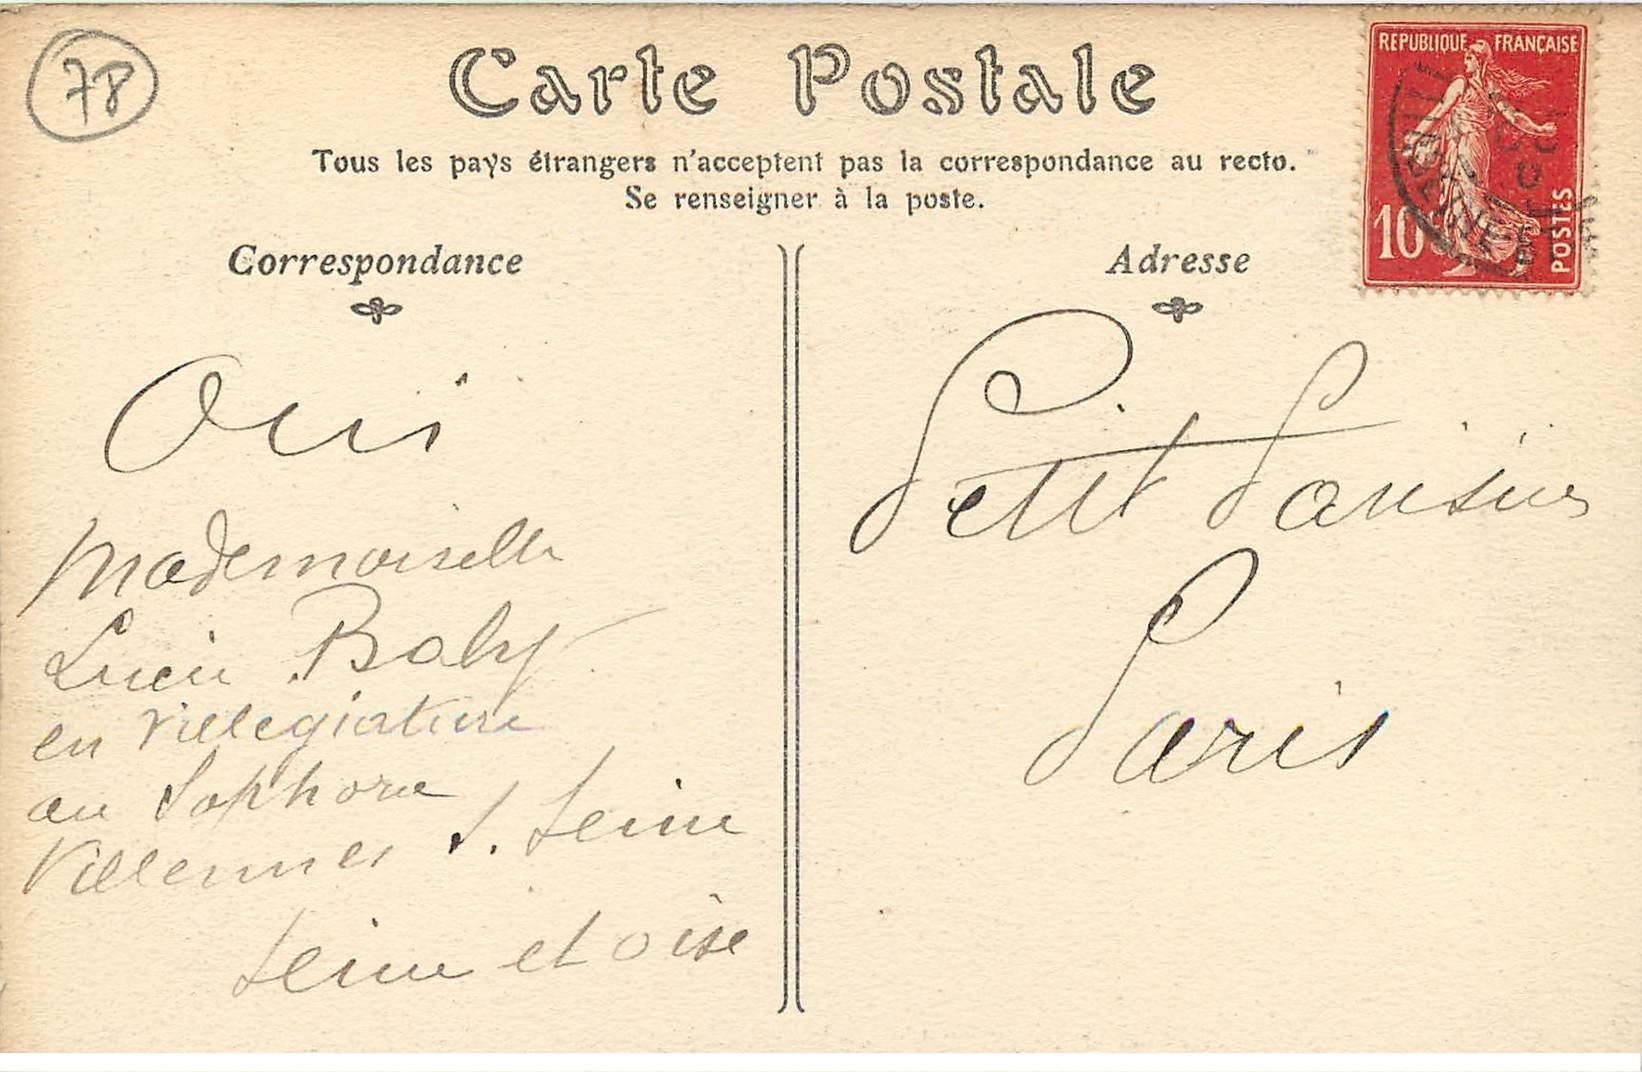 78
Carte Postale
Tous les pays étrangers n'acceptent pas la correspondance au recto.
Se renseigner à la poste.
REPUBLIQUE FRANÇAISE
10c
POSTES
Correspondance
Oui
Mademoiselle
Lucie Baly
en villegiature
au Sophora
Villennes s. Seine
Seine et Oise
Adresse
Petit Parisien
Paris